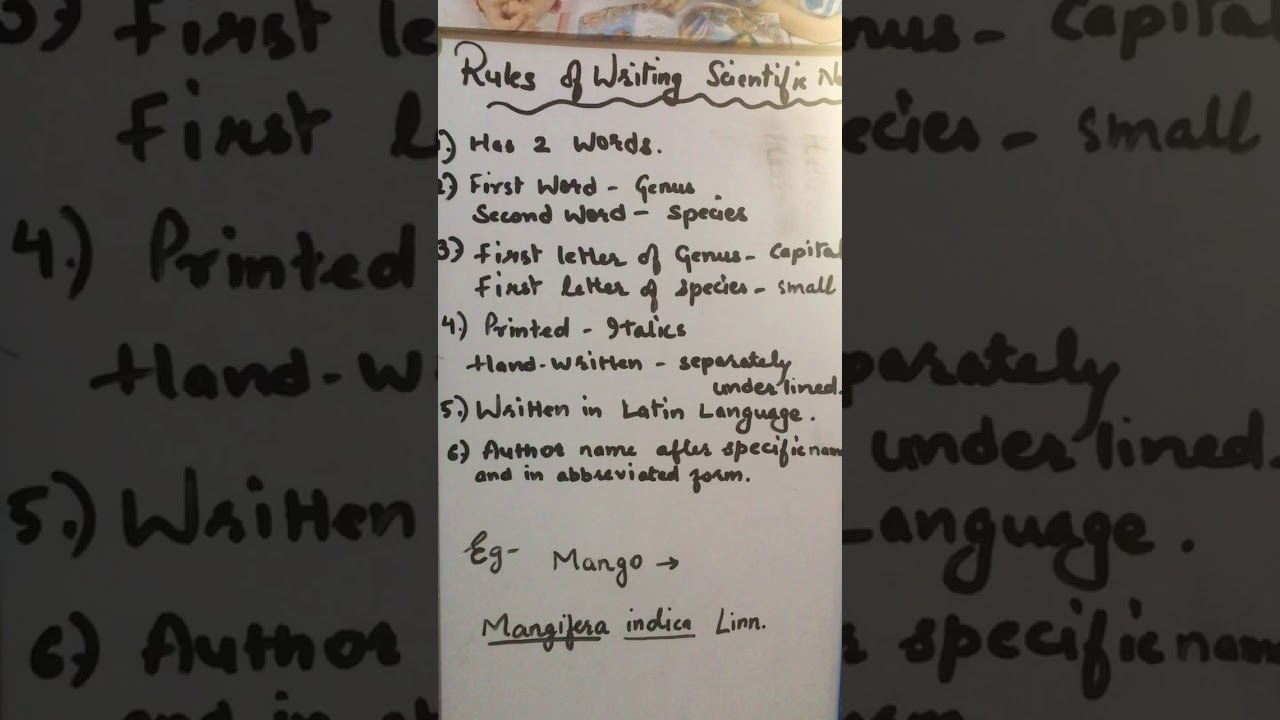 Rules of Writing Scientific N
1.) Has 2 Words.
2) First Word - Genus
Second Word - Species
3.) First letter of Genus - Capital
First letter of species - small
4.) Printed - Italics
Hand-written - separately
underlined.
5.) Written in Latin Language.
6) Author name after specific nam
and in abbreviated form.
Eg- Mango →
Mangifera indica Linn.